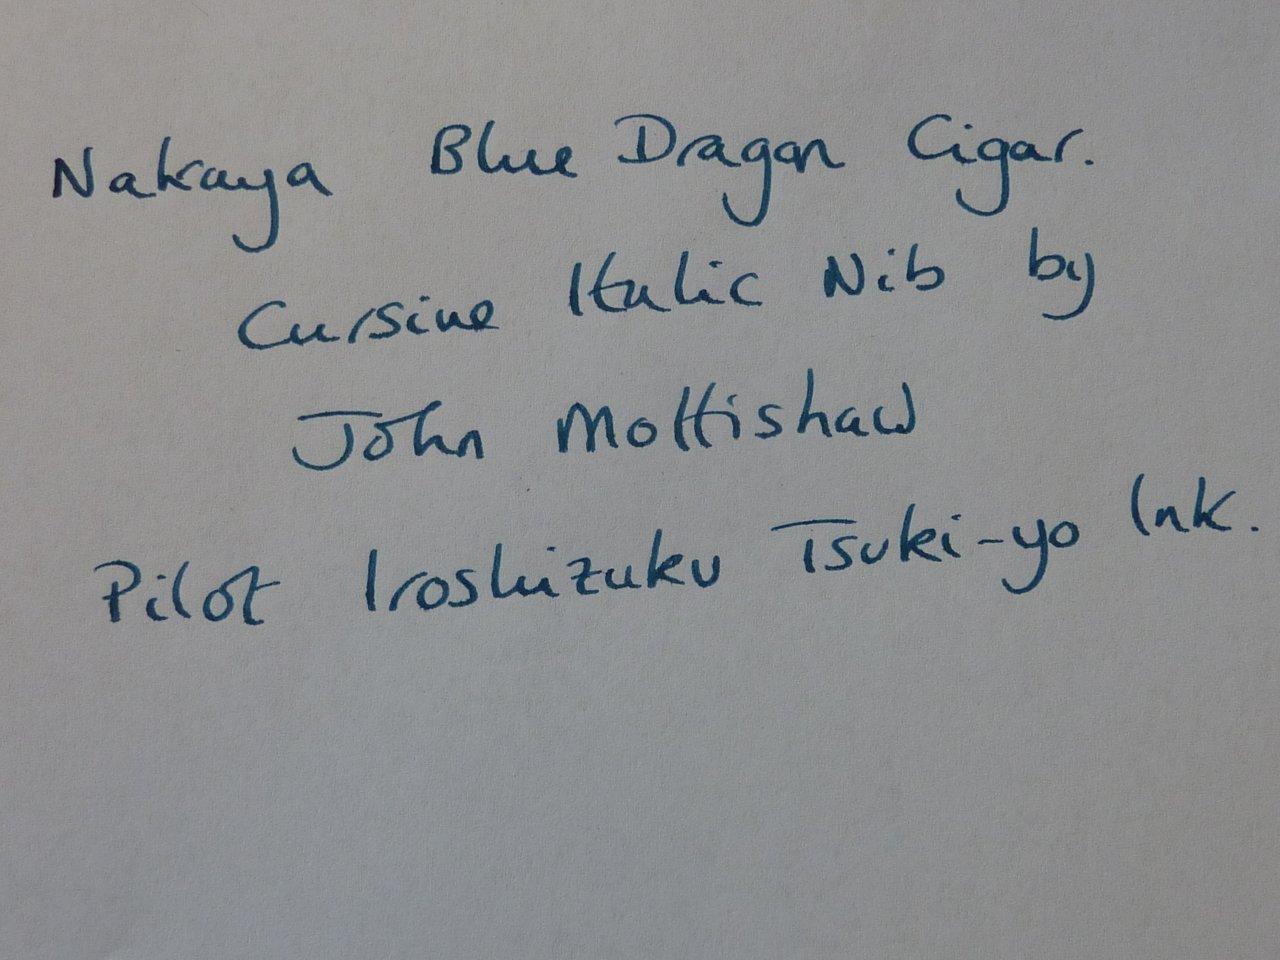 Nakaya Blue Dragon Cigar.
Cursive Italic Nib by
John Mottishaw
Pilot Iroshizuku Tsuki-yo Ink.